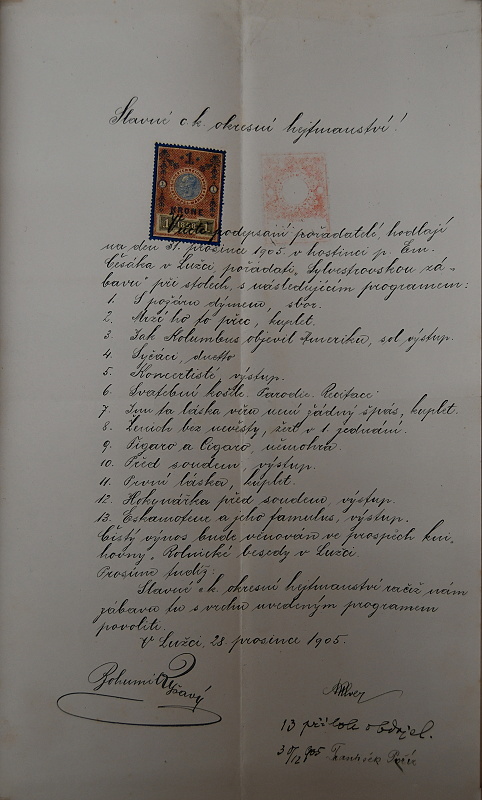 Slavné c. k. okresní hejtmanství!
1
KRONE
Uctivě podepsaní pořadatelé, hodlají
na den 31. prosince 1905. v hostinci p. Em.
Češáka v Lužci, pořádati „Sylvestrovskou zá-
bavu" při stolech, s následujícím programem:
1. S požáru dýmem, sbor.
2. Mrzí ho to přec, kuplet.
3. Jak Kolumbus objevil Ameriku, sol. výstup.
4. Syčáci, duetto
5. Koncertisté, výstup.
6. Svatební košile. Parodie. Recitace.
7. Inu ta láska věru není žádný špás, kuplet.
8. Ženich bez nevěsty, žert v 1 jednání.
9. Figaro a Cigaro, němohra.
10. Před soudem, výstup.
11. První láska, kuplet.
12. Hokynářka před soudem, výstup.
13. Eskamoteur a jeho famulus, výstup.
Čistý výnos bude věnován ve prospěch kni-
hovny „Rolnické besedy v Lužci.
Prosíme tudíž:
Slavné c. k. okresní hejtmanství račiž nám
zábavu tu s vrchu uvedeným programem
povoliti.
V Lužci, 28 prosince 1905.
Bohumil
13 příloh obdržel.
30/12 905 František